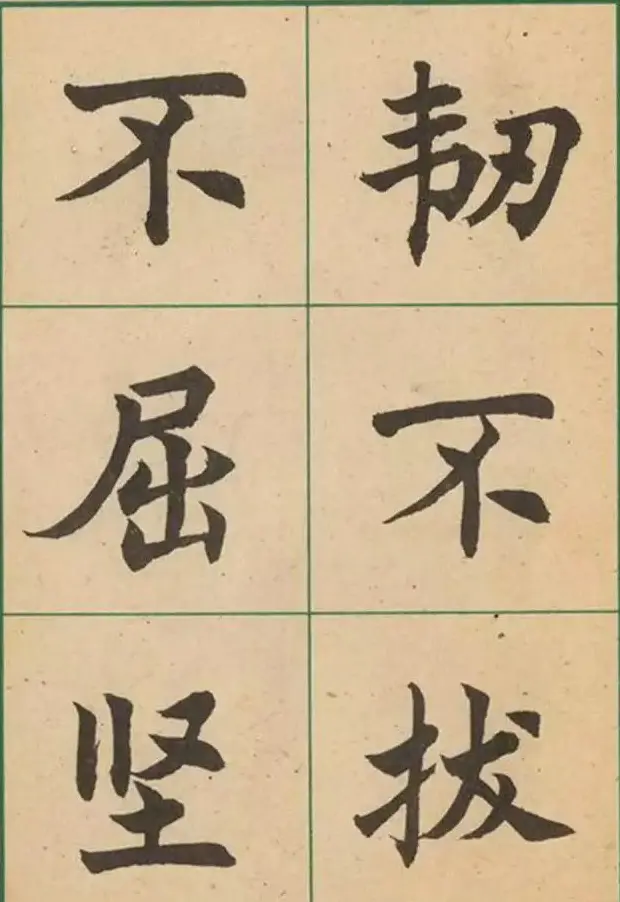 不屈坚
韧不拔